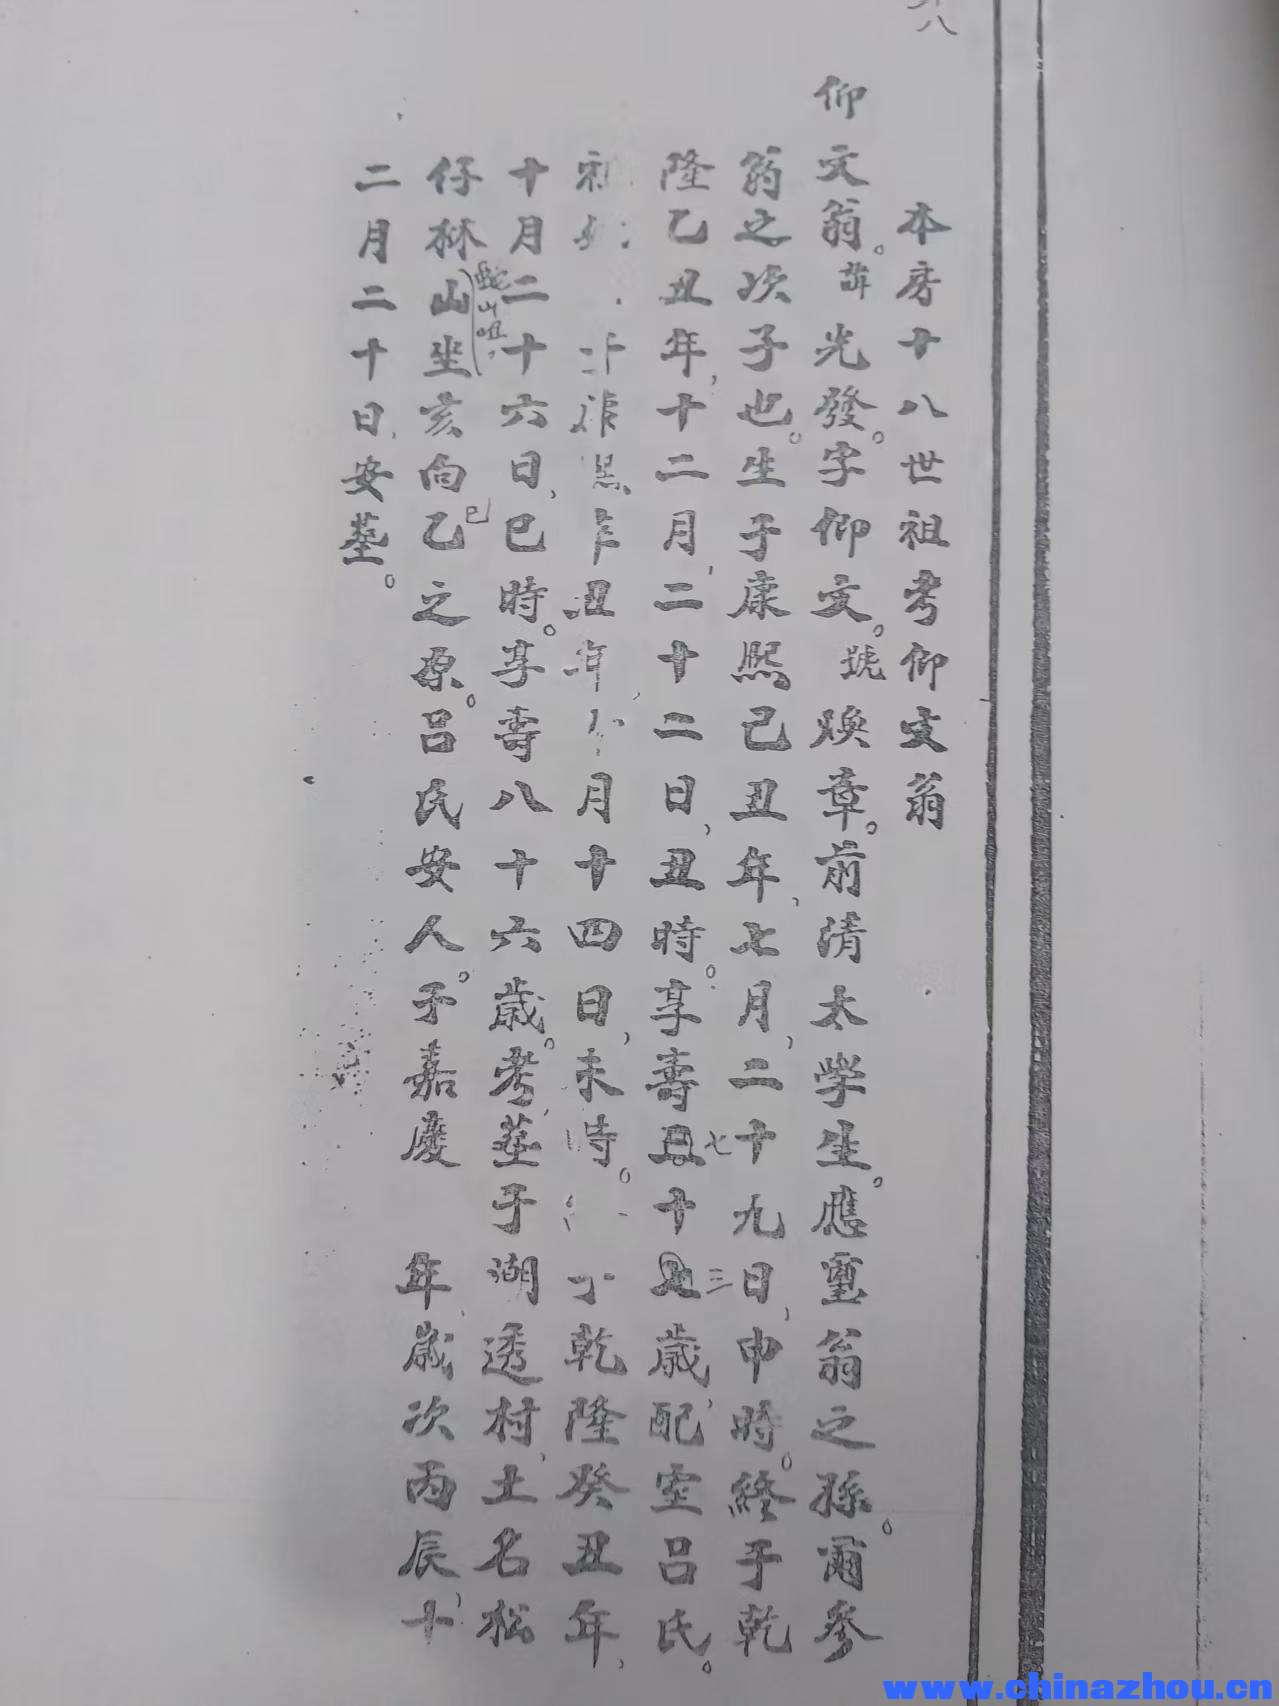 八
本房十八世祖考仰文翁
仰文翁。諱光發。字仰文。號煥章。前清太學生。應璽翁之孫。爾參
翁之次子也。生于康熙己丑年、七月、二十九日、申時。終于乾
隆乙丑年、十二月、二十二日、丑時。享壽七十三歲、配室呂氏。
丑年、月十四日、未時。于乾隆癸丑年、
十月二十六日、巳時。享壽八十六歲。考、塋于湖透村、土名松
仔林山坐亥向乙之原。呂氏安人。于嘉慶 年、歲次丙辰、十
蛇山咀、
巳
二月二十日、安塋。
www.chinazhou.cn